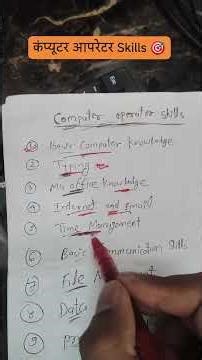 कंप्यूटर आपरेटर Skills 🎯
Computer operator skills
① Basic Computer knowledge
② Typing
③ MS office knowledge
④ Internet and Email
⑤ Time Management
⑥ Basic Skills
⑦ File
⑧ Data
⑨